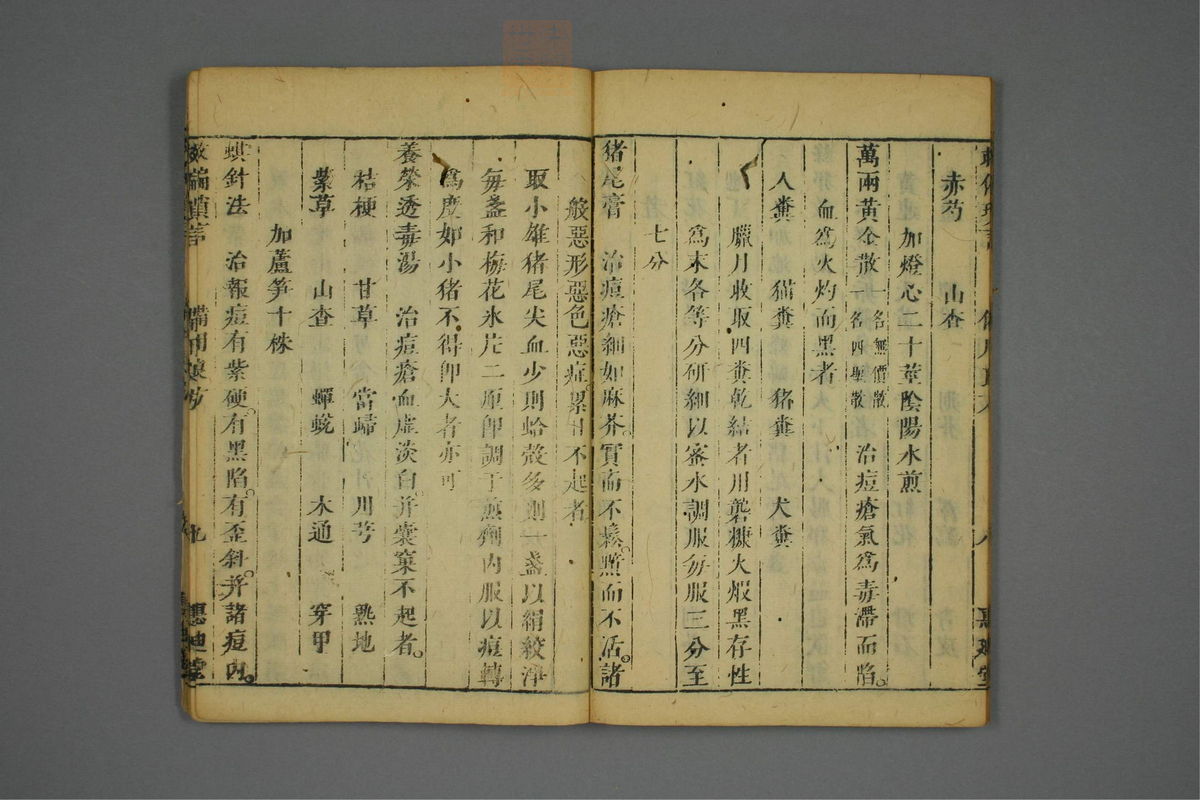 赤芍　山查
加燈心二十莖陰陽水煎
萬兩黃金散 一名無價散 一名四聖散 治痘瘡氣爲毒滯而陷
血爲火灼而黑者
人糞　猫糞　猪糞　犬糞
臘月收取四糞乾結者用礱糠火煆黑存性
爲末各等分研細以蜜水調服每服三分至
七分
猪尾膏　治痘瘡細如麻芥實而不鬆黑而不活諸
般惡形惡色惡症累日不起者
取小雄猪尾尖血少則蛤殼多則一盞以絹絞淨
每盞和梅花氷片二厘卽調于煎劑內服以痘轉
爲度如小猪不得卽大者亦可
養榮透毒湯　治痘瘡血虛淡白并囊窠不起者
桔梗　甘草　當歸　川芎　熟地
紫草　山查　蟬蛻　木通　穿甲
加蘆笋十株
針法　治報痘有紫硬有黑陷有歪斜并諸痘內